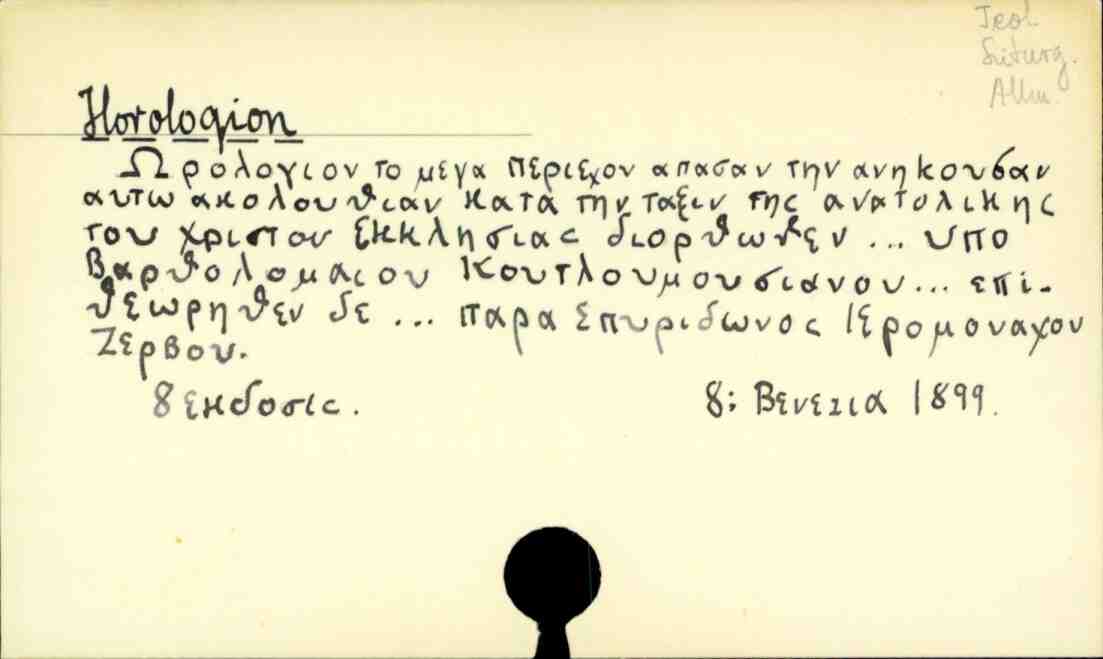 Teol.
Liturg.
Allm.
Horologion
Ωρολογιον το μεγα περιεχον απασαν την ανηκουσαν
αυτω ακολουθιαν κατα την ταξιν της ανατολικης
του χριστου εκκλησιας διορθωθεν ... υπο
Βαρθολομαιου Κουτλουμουσιανου... επι-
θεωρηθεν δε ... παρα Σπυριδωνος Ιερομοναχου
Ζερβου.
8 εκδοσις. 8: Βενεzια 1899.